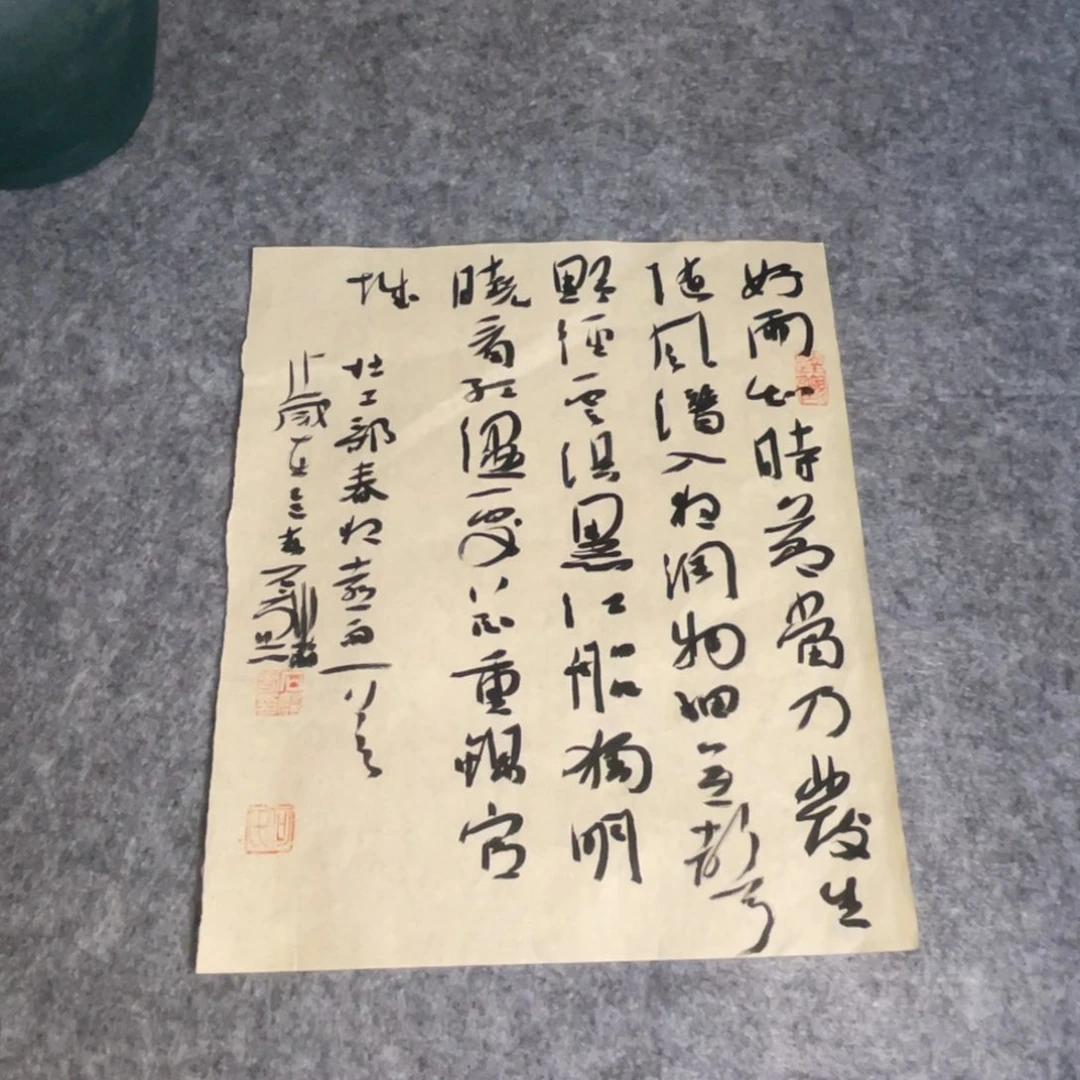 好雨知時節當乃發生
隨風潛入夜潤物細無聲
野徑雲俱黑江船獨明
曉看紅濕處花重錦官
城
杜工部春夜喜雨一首
歲在